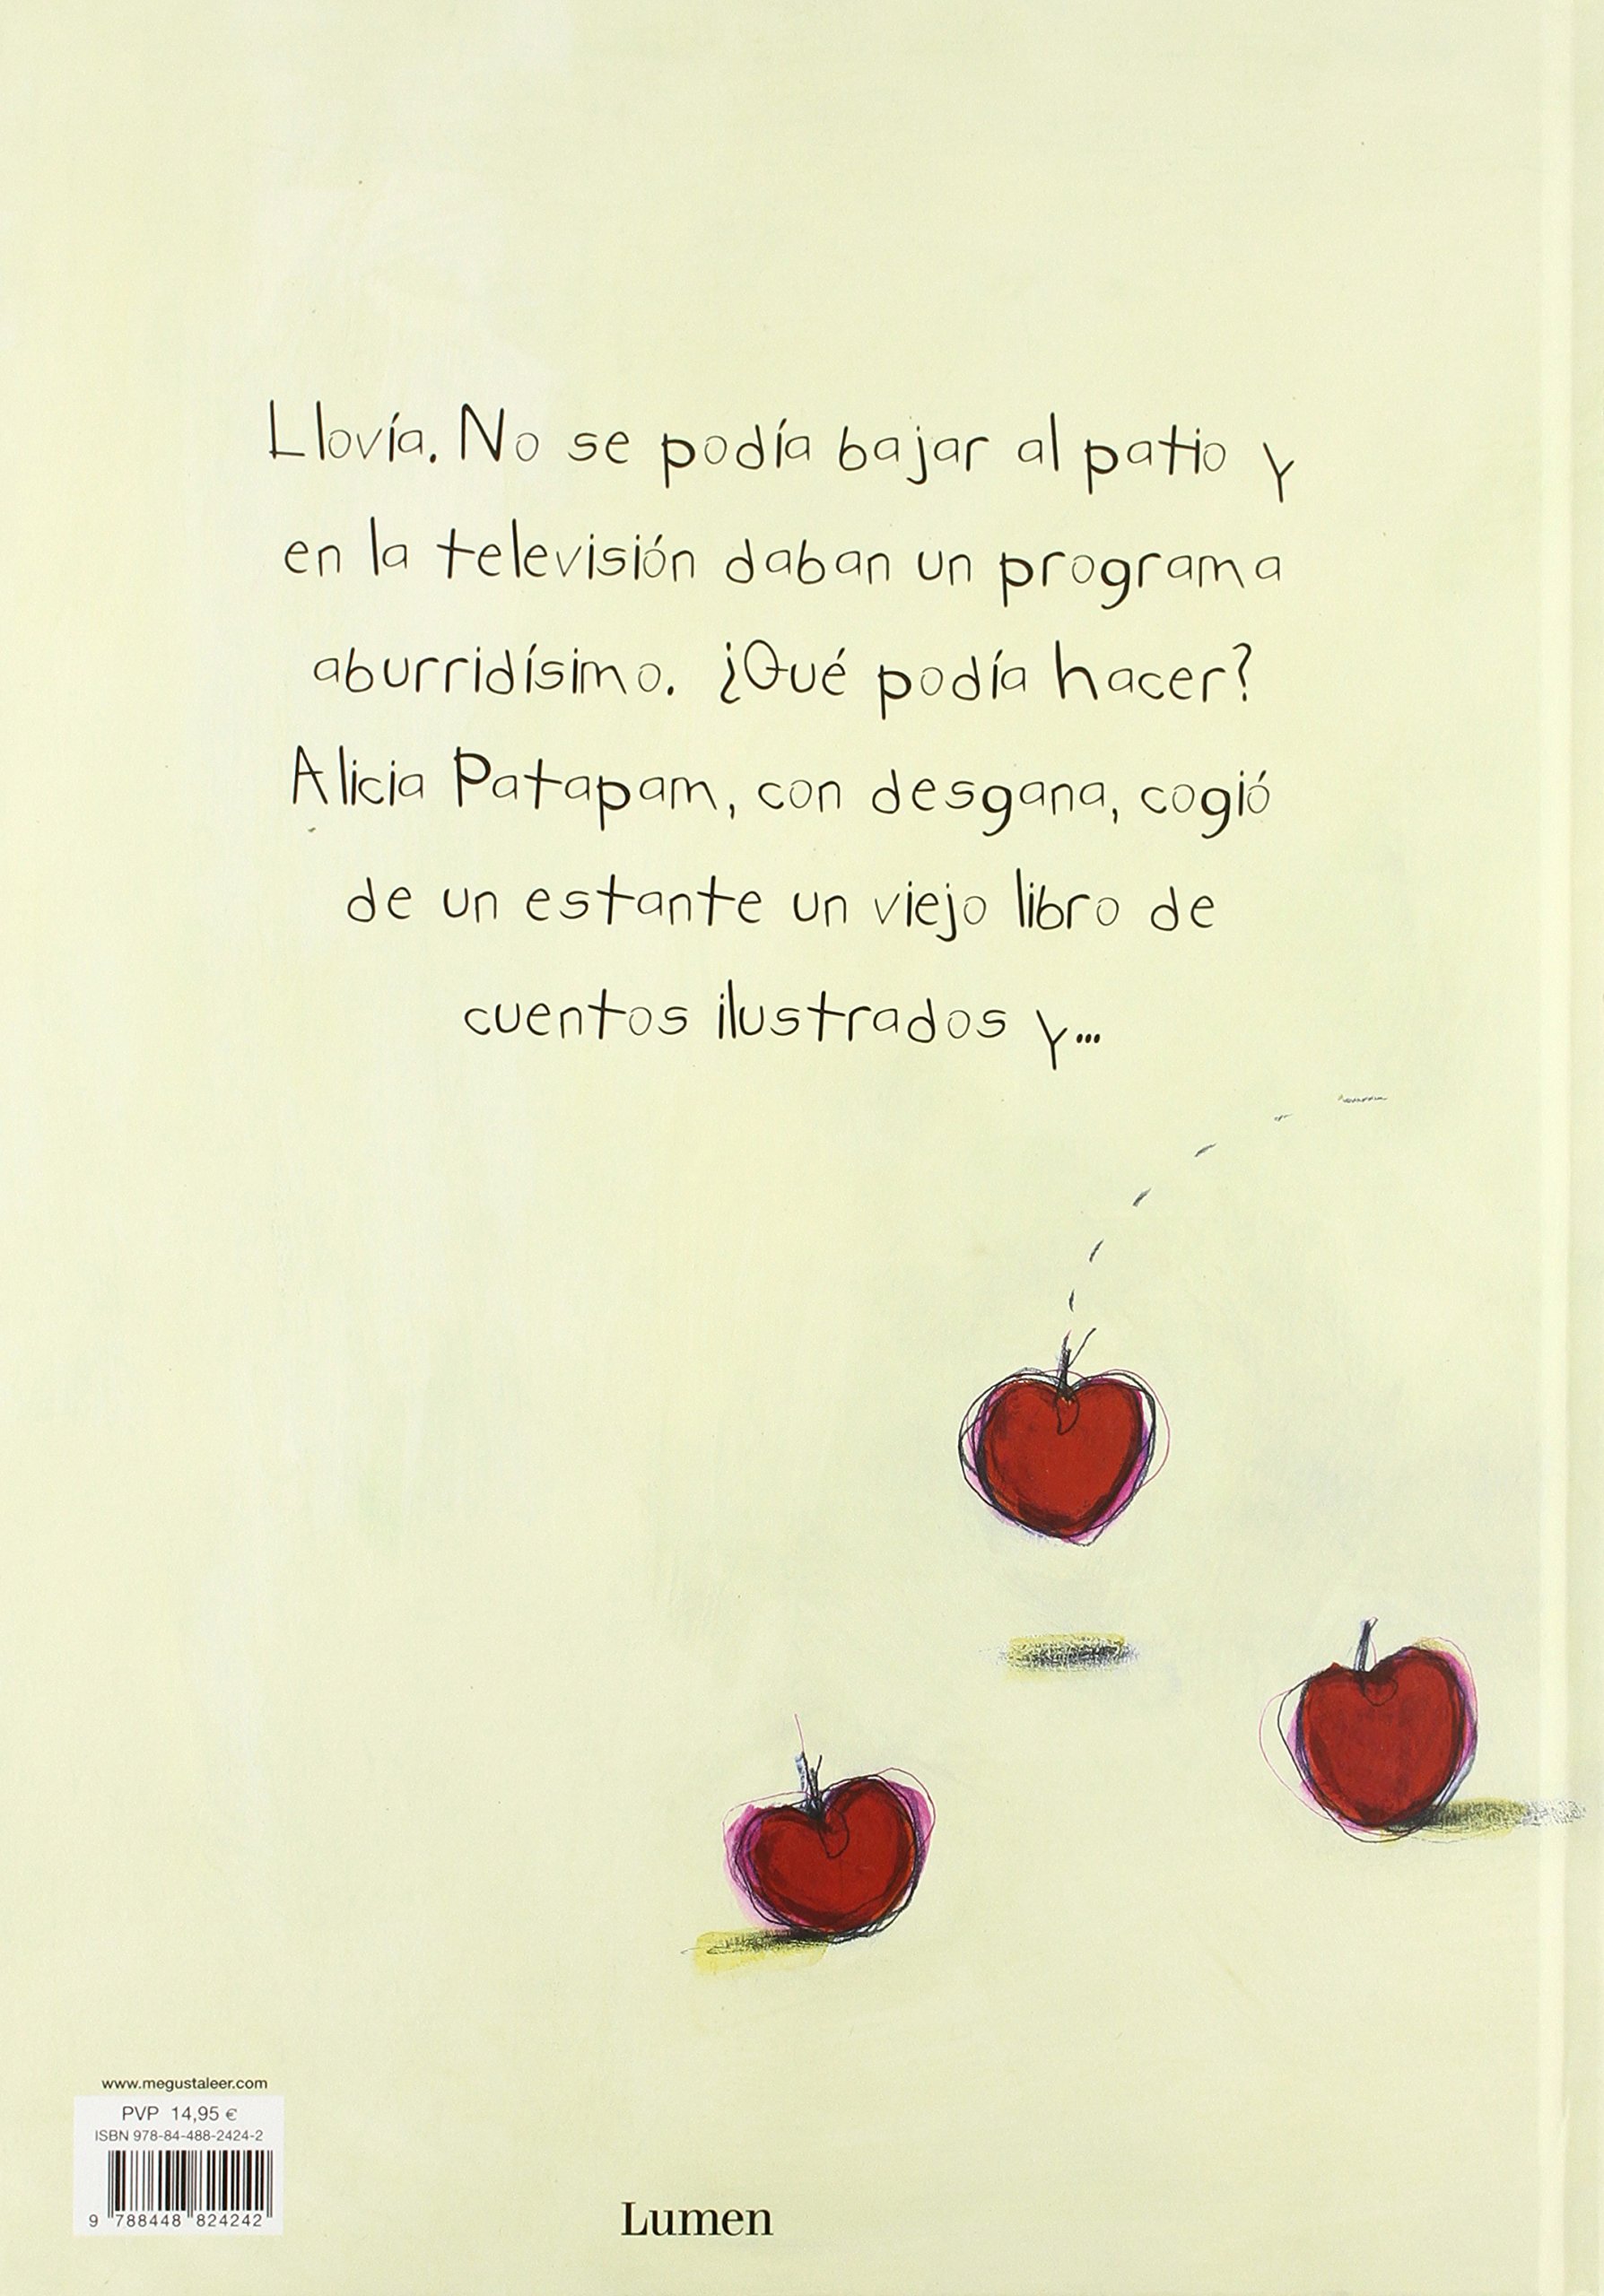 Llovía. No se podía bajar al patio y
en la televisión daban un programa
aburridísimo. ¿Qué podía hacer?
Alicia Patapam, con desgana, cogió
de un estante un viejo libro de
cuentos ilustrados y...
www.megustaleer.com
PVP 14,95 €
ISBN 978-84-488-2424-2
9 788448 824242
Lumen